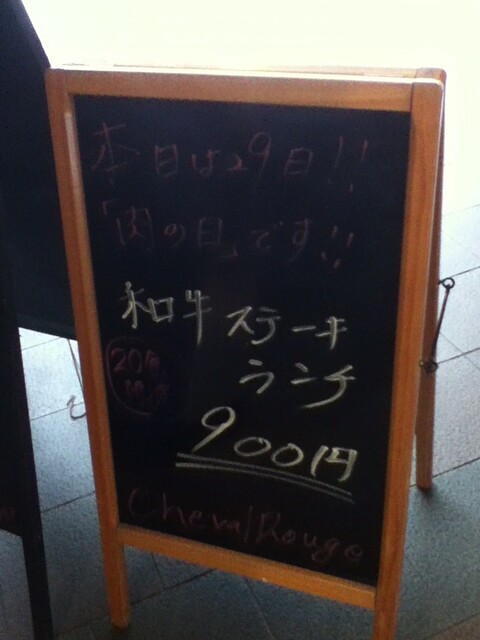 本日は29日!!
「肉の日」です!!
和牛ステーキ
ランチ
20食
限定
900円
Cheval Rouge